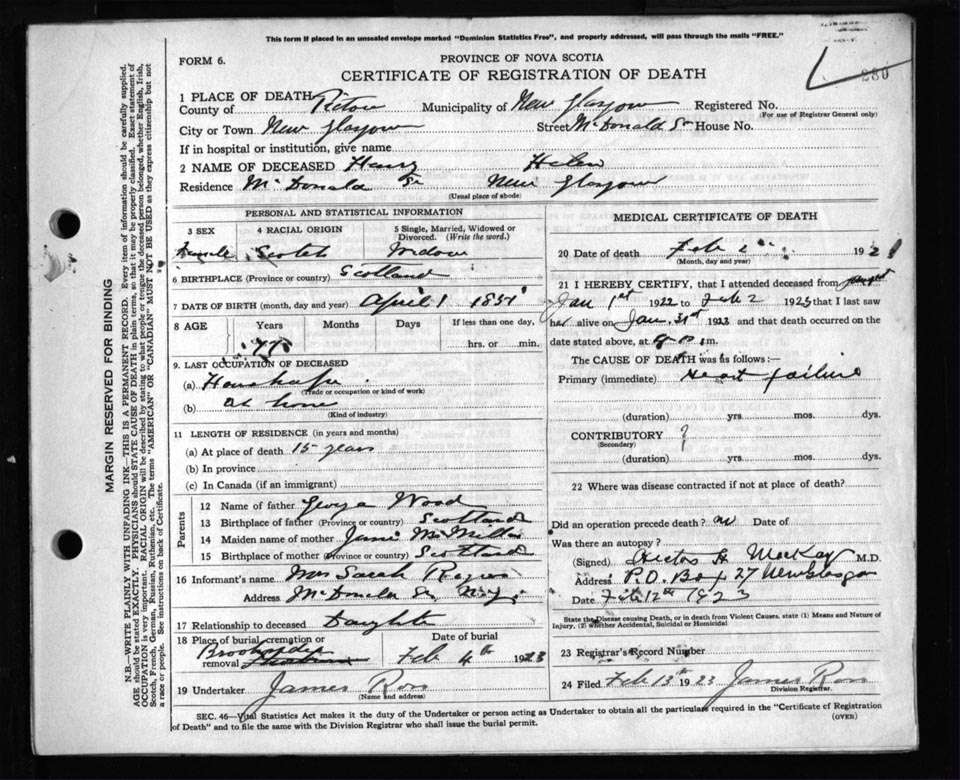 This form if placed in an unsealed envelope marked "Dominion Statistics Free", and properly addressed, will pass through the mails "FREE."
FORM 6.
PROVINCE OF NOVA SCOTIA
CERTIFICATE OF REGISTRATION OF DEATH
280
1 PLACE OF DEATH
County of Pictou Municipality of New Glasgow Registered No.
(For use of Registrar General only)
City or Town New Glasgow Street McDonald St House No.
If in hospital or institution, give name
2 NAME OF DECEASED Helen
Residence McDonald St New Glasgow
(Usual place of abode)
PERSONAL AND STATISTICAL INFORMATION
3 SEX 4 RACIAL ORIGIN 5 Single, Married, Widowed or Divorced. (Write the word.)
Female Scotch Widow
6 BIRTHPLACE (Province or country) Scotland
7 DATE OF BIRTH (month, day and year) April 1
8 AGE Years Months Days If less than one day,
hrs. or min.
9. LAST OCCUPATION OF DECEASED
(a)
(Trade or occupation or kind of work)
(b) at home
(Kind of industry)
11 LENGTH OF RESIDENCE (in years and months)
(a) At place of death 15 years
(b) In province
(c) In Canada (if an immigrant)
Parents
12 Name of father George Wood
13 Birthplace of father (Province or country) Scotland
14 Maiden name of mother McMillan
15 Birthplace of mother (Province or country) Scotland
16 Informant's name Mrs Sarah
Address McDonald St, N.G.
17 Relationship to deceased Daughter
18 Place of burial, cremation or removal Date of burial
Feb 4th 1923
19 Undertaker James Ross
(Name and address)
MEDICAL CERTIFICATE OF DEATH
20 Date of death Feb 2 192
(Month, day and year)
21 I HEREBY CERTIFY, that I attended deceased from
Jan 1st 1922 to Feb 2 1923 that I last saw
her alive on Jan. 31st 1923 and that death occurred on the
date stated above, at m.
The CAUSE OF DEATH was as follows:—
Primary (immediate) Heart failure
(duration) yrs. mos. dys.
CONTRIBUTORY ?
(Secondary)
(duration) yrs. mos. dys.
22 Where was disease contracted if not at place of death?
Did an operation precede death? no Date of
Was there an autopsy?
(Signed) MacKay M.D.
Address P.O. Box 27 New Glasgow
Date Feb 12th 1923
State the Disease causing Death, or in death from Violent Causes, state (1) Means and Nature of Injury, (2) whether Accidental, Suicidal or Homicidal
23 Registrar's Record Number
24 Filed Feb 13th 1923 James Ross
Division Registrar.
SEC. 46—Vital Statistics Act makes it the duty of the Undertaker or person acting as Undertaker to obtain all the particulars required in the "Certificate of Registration
of Death" and to file the same with the Division Registrar who shall issue the burial permit.
(OVER)
MARGIN RESERVED FOR BINDING
N.B.—WRITE PLAINLY WITH UNFADING INK—THIS IS A PERMANENT RECORD. Every item of information should be carefully supplied.
AGE should be stated EXACTLY. PHYSICIANS should STATE CAUSE OF DEATH in plain terms, so that it may be properly classified. Exact statement of
OCCUPATION is very important. RACIAL ORIGIN will be described by stating to what people or tongue the deceased person belonged, whether English, Irish,
Scotch, French, German, Russian, Ruthenian, etc. The terms "AMERICAN" OR "CANADIAN" MUST NOT BE USED as they express citizenship but not
a race or people. See instructions on back of Certificate.